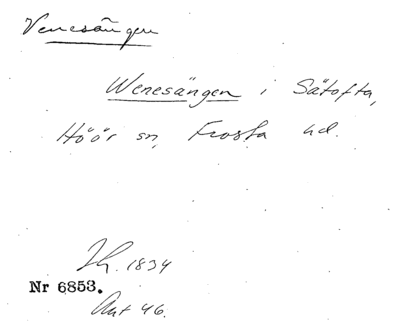 Venesängen
Wenesängen i Sätofta,
Höör sn, Frosta hd.
1834
Nr 6853.
Akt 46.